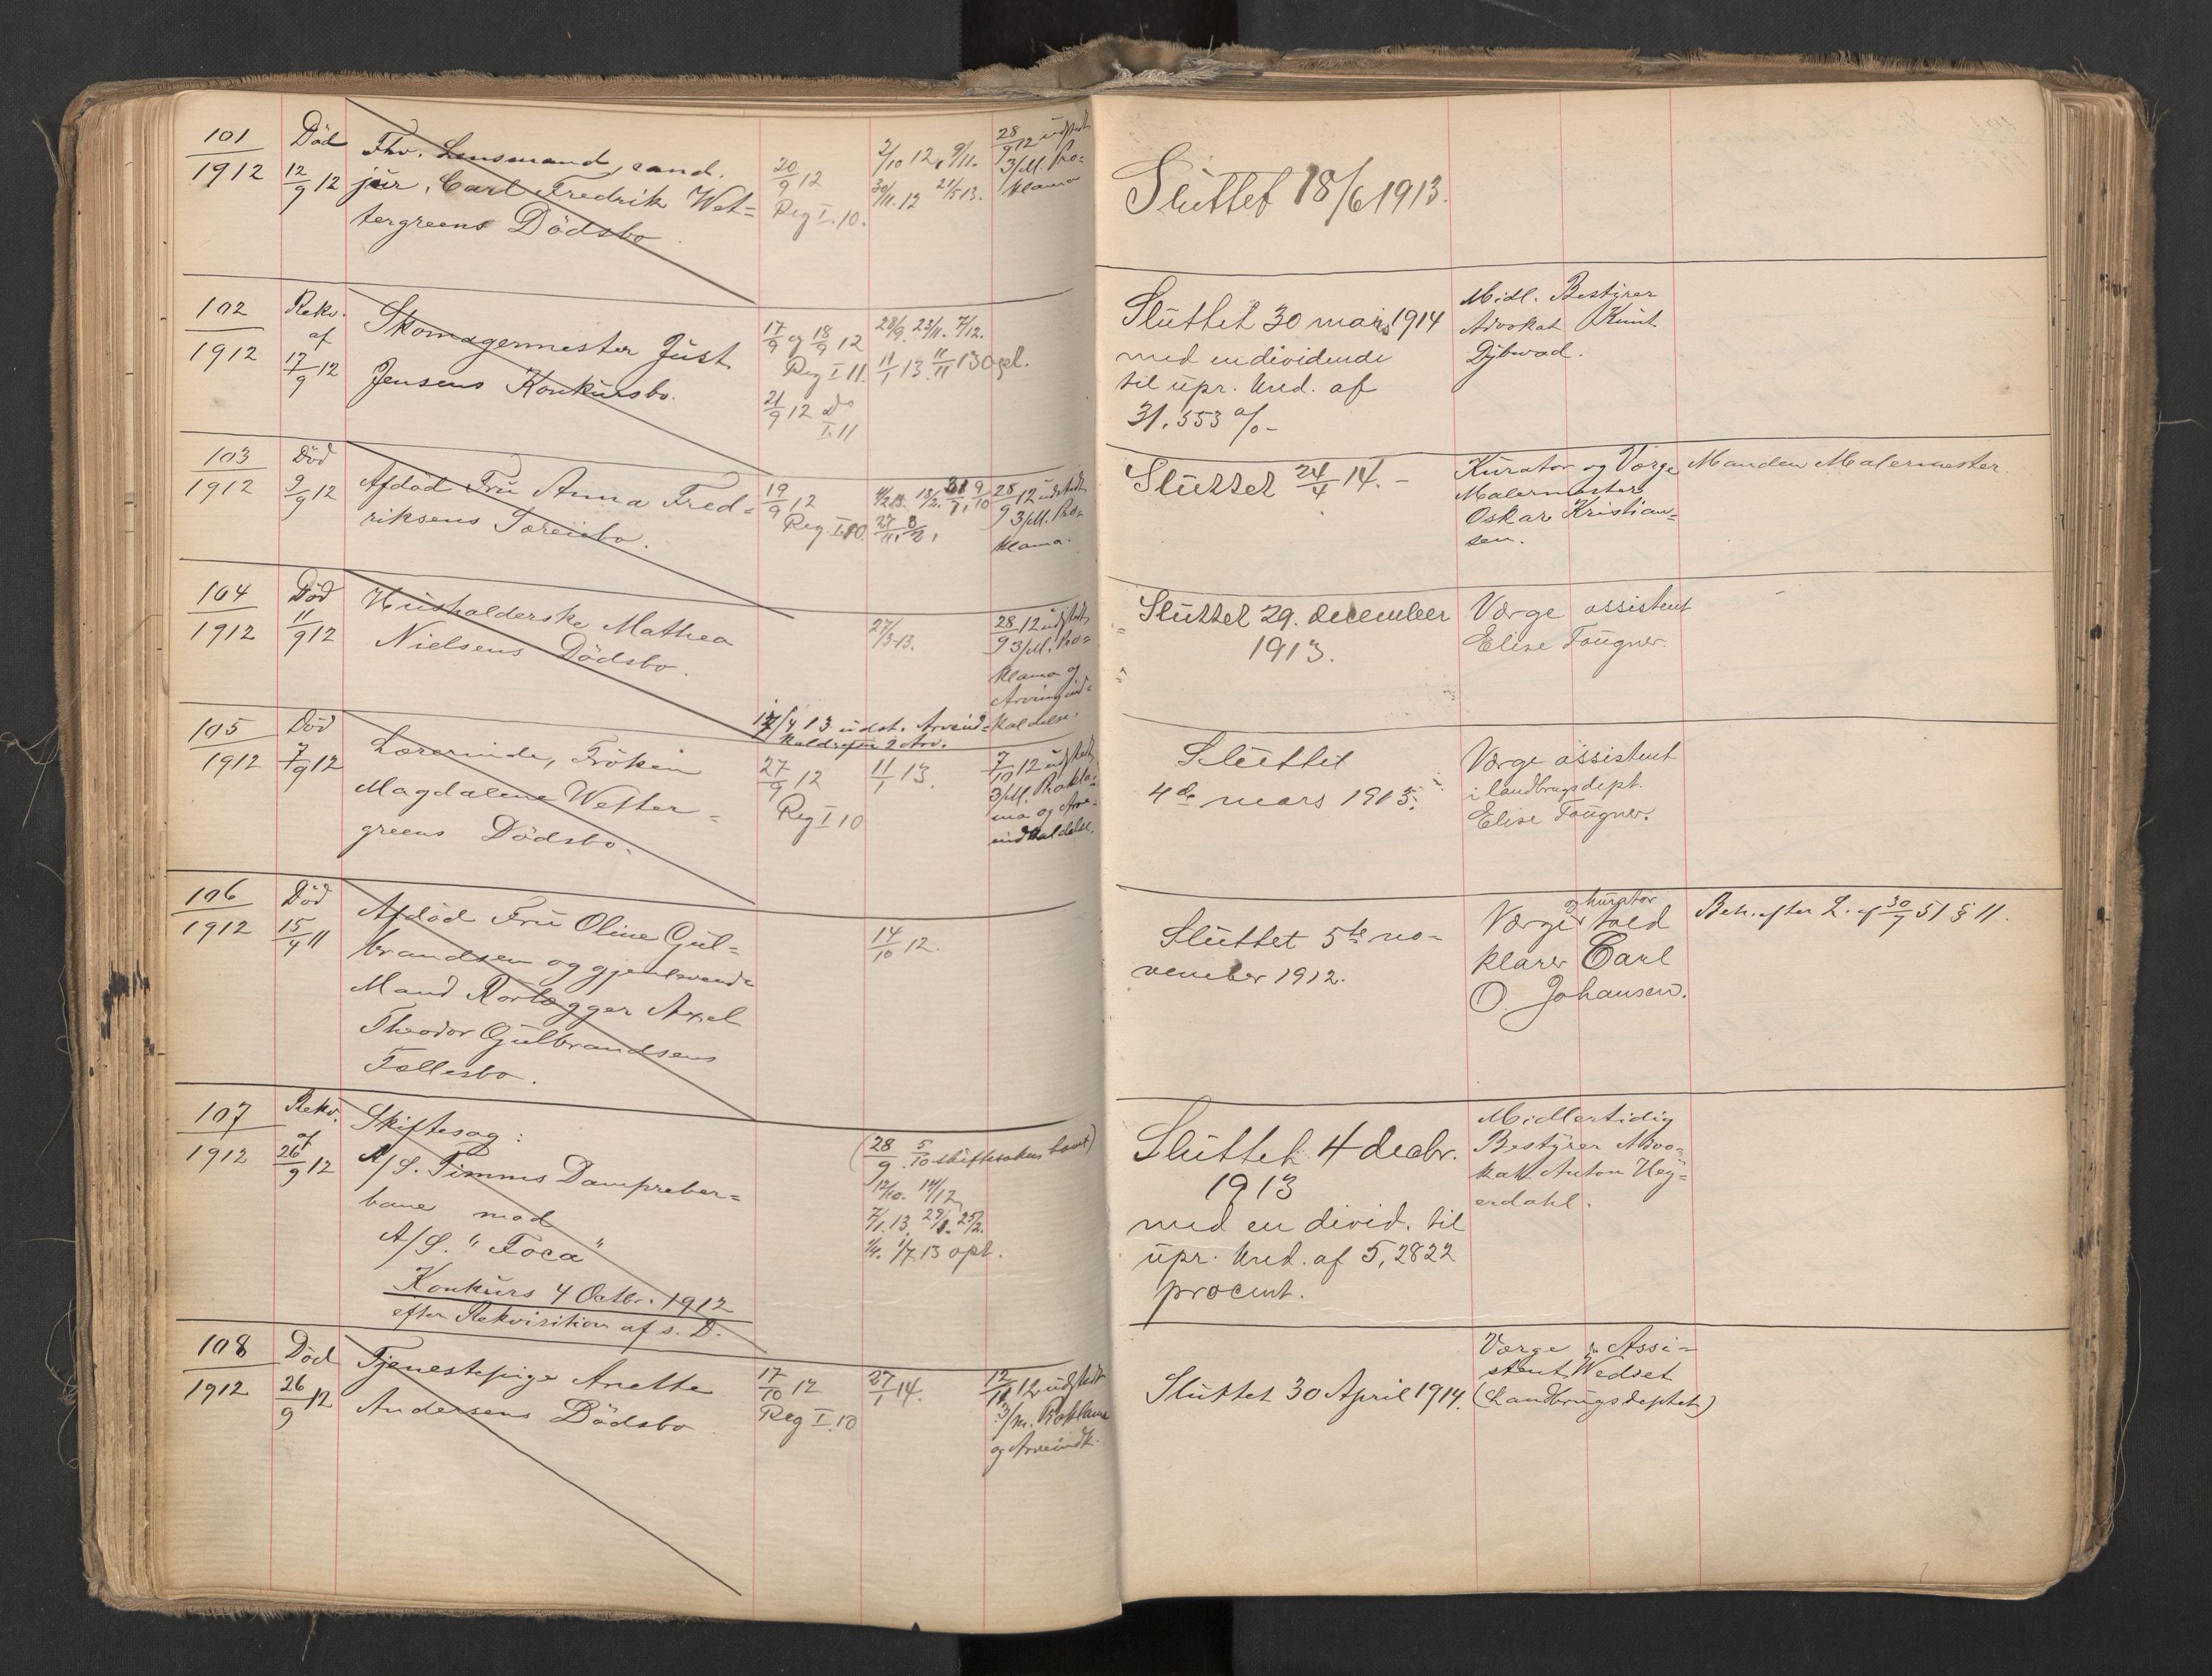 101
1912
Död
12/9 12
Fhv. Lensmand, cand.
jur. Carl Fredrik Wet=
tergreens Dödsbo.
20/9 12
Reg I. 10.
2/10 12, 9/11.
30/11. 12 21/5 13.
28/9 12 udstedt
3/M. Pro=
klama
Sluttet 18/6 1913.
102
1912
Rekv.
af
17/9 12
Skomagermester Just
Jensens Konkursbo.
17/9 og 18/9 12
Reg I 11.
21/9 12 do
I. 11
28/9. 23/11. 7/12.
11/1 13. 11/11 13 opl.
Sluttet 30 mars 1914
med en dividende
til upr. kred. af
31,553 %-
Midl. Bestyrer
Advokat Knut
Dybwad.
103
1912
Död
9/9 12
Afdöd Fru Anna Fred=
riksens Særeiebo.
19/9 12
Reg. I. 10.
28/9 12 udstedt
3/M. Pro=
klama.
Sluttet 24/4 14. -
Kurator og Værge
Malermester
Oskar Kristian=
sen.
Manden Malermester.
104
1912
Död
11/9 12
Husholderske Mathea
Nielsens Dödsbo.
27/3 13.
28/9 12 udstedt
3/M. Pro=
klama og
Arvingind=
kaldelse.
Sluttet 29. december
1913.
Værge assistent
Elise Fougner.
17/4 13 udst. Arveind=
105
1912
Död
7/9 12
Lærerinde, Fröken
Magdalene Wetter=
greens Dödsbo.
27/9 12
Reg I 10
11/1 13.
7/10 12 udstedt
3/M. Prokla=
ma og Arve=
indkaldelse.
Sluttet
4de mars 1913.
Værge assistent
i landbrugsdept.
Elise Fougner.
106
1912
Död
15/4 11
Afdöd Fru Oline Gul=
brandsen og gjenlevende
Mand Rorlægger Axel
Theodor Gulbrandsens
Fællesbo.
14/10 12.
Sluttet 5te no=
vember 1912.
og kurator
Værge told
klarer Carl
O. Johansen.
Beh. efter L. af 30/7 51 § 11.
107
1912
Rekv.
af
26/9 12
Skiftesag:
A/S. Timms Dampreber=
bane mod
A/S. "Foca"
Konkurs 4 Octbr. 1912
efter Rekvisition af s. D.
(28/9. 5/10 skifterakus havt)
12/10. 14/12
7/1. 13. 29/1. 25/2.
1/4. 1/7 13 opt.
Sluttet 4 decbr.
1913
med en divid. til
upr. kred. af 5,2822
procent.
Midlertidig
Bestyrer Advo=
kat Anton Hey=
erdahl.
108
1912
Död
26/9 12
Tjenestepige Anette
Andersens Dödsbo
17/10 12
Reg I. 10
27/1 14.
12/11 12 udstedt
3/m. Proklama
og Arveindk.
Sluttet 30 April 1914.
Værge Assi=
stent Wedset
(Landbrugsdeptet)